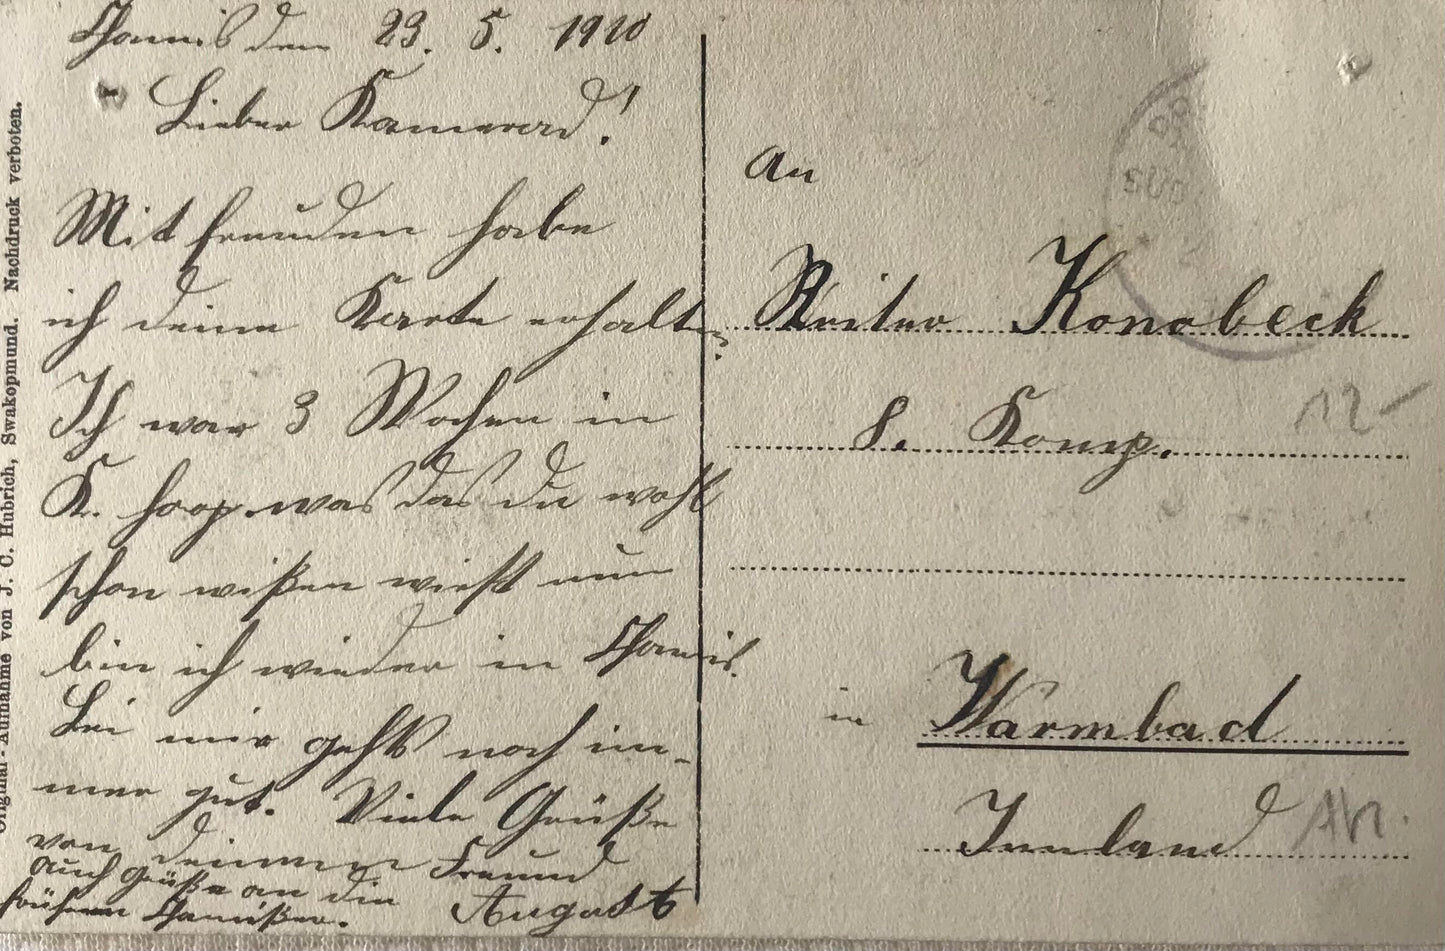 Chamis den 23. 5. 1910
Lieber Kamerad!
Mit freuden habe
ich deine Karte erhalten
Ich war 3 Wochen in
K. hoop was das du wohl
schon wißen wirst nun
bin ich wieder in Chamis.
Bei mir gehts noch im-
mer gut. Viele Grüße
von deinem Freund
August
Auch Grüße an die
frühern Chamißer.
An
Reiter Konobeck
8. Komp.
in Warmbad
Innland
12-
Original-Aufnahme von J. C. Hubrich, Swakopmund. Nachdruck verboten.